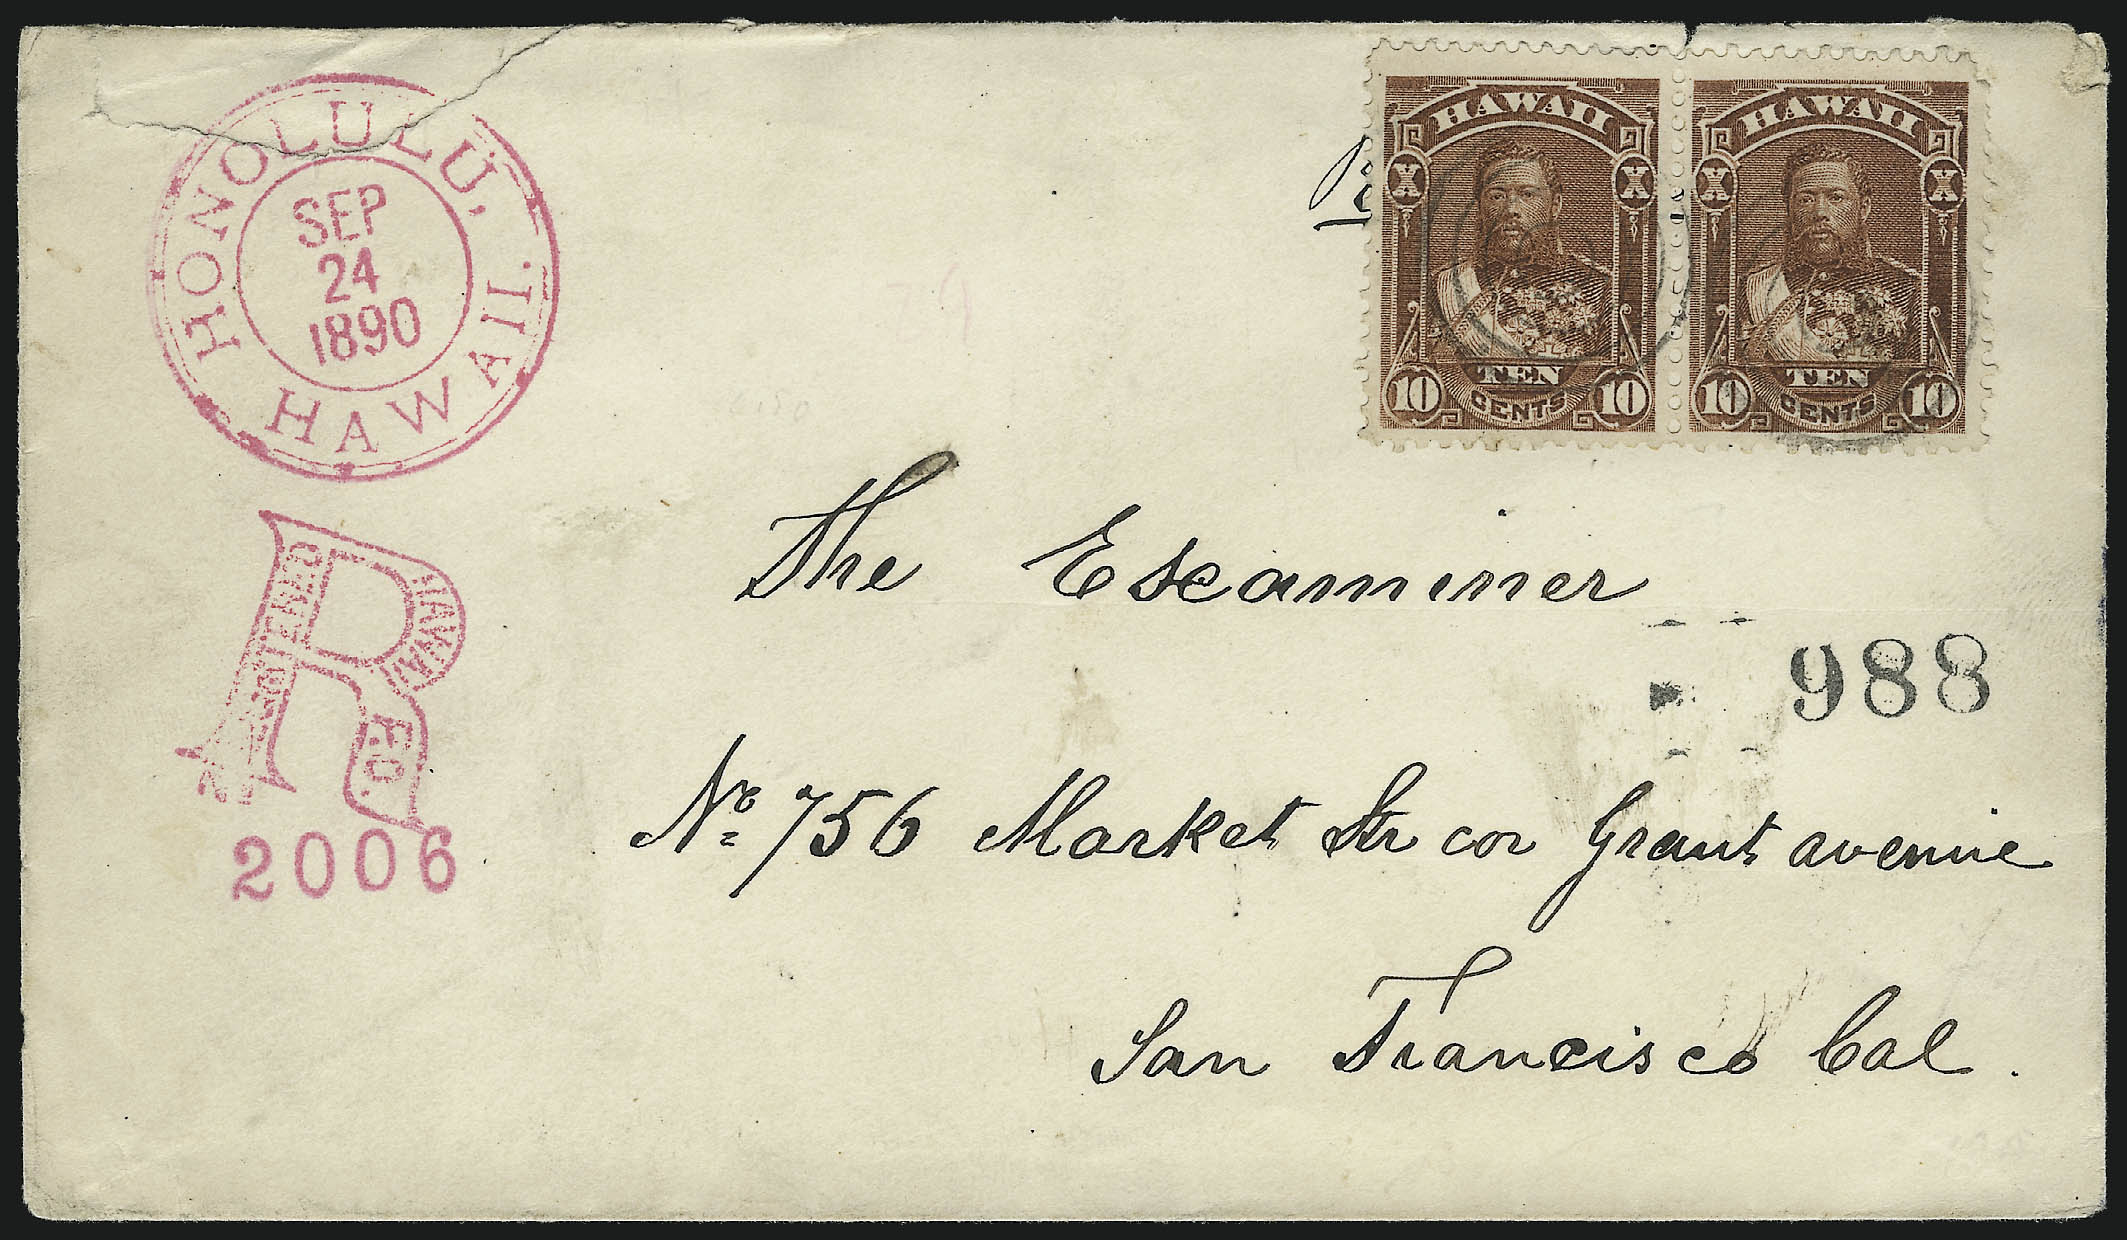 HONOLULU,
SEP
24
1890
HAWAII.
HAWAII HAWAII
X X X X
TEN TEN
10 CENTS 10 10 CENTS 10
HAWAII
P.O.
2006
The Examiner
988
No. 756 Market Str cor Grant avenue
San Francisco Cal.